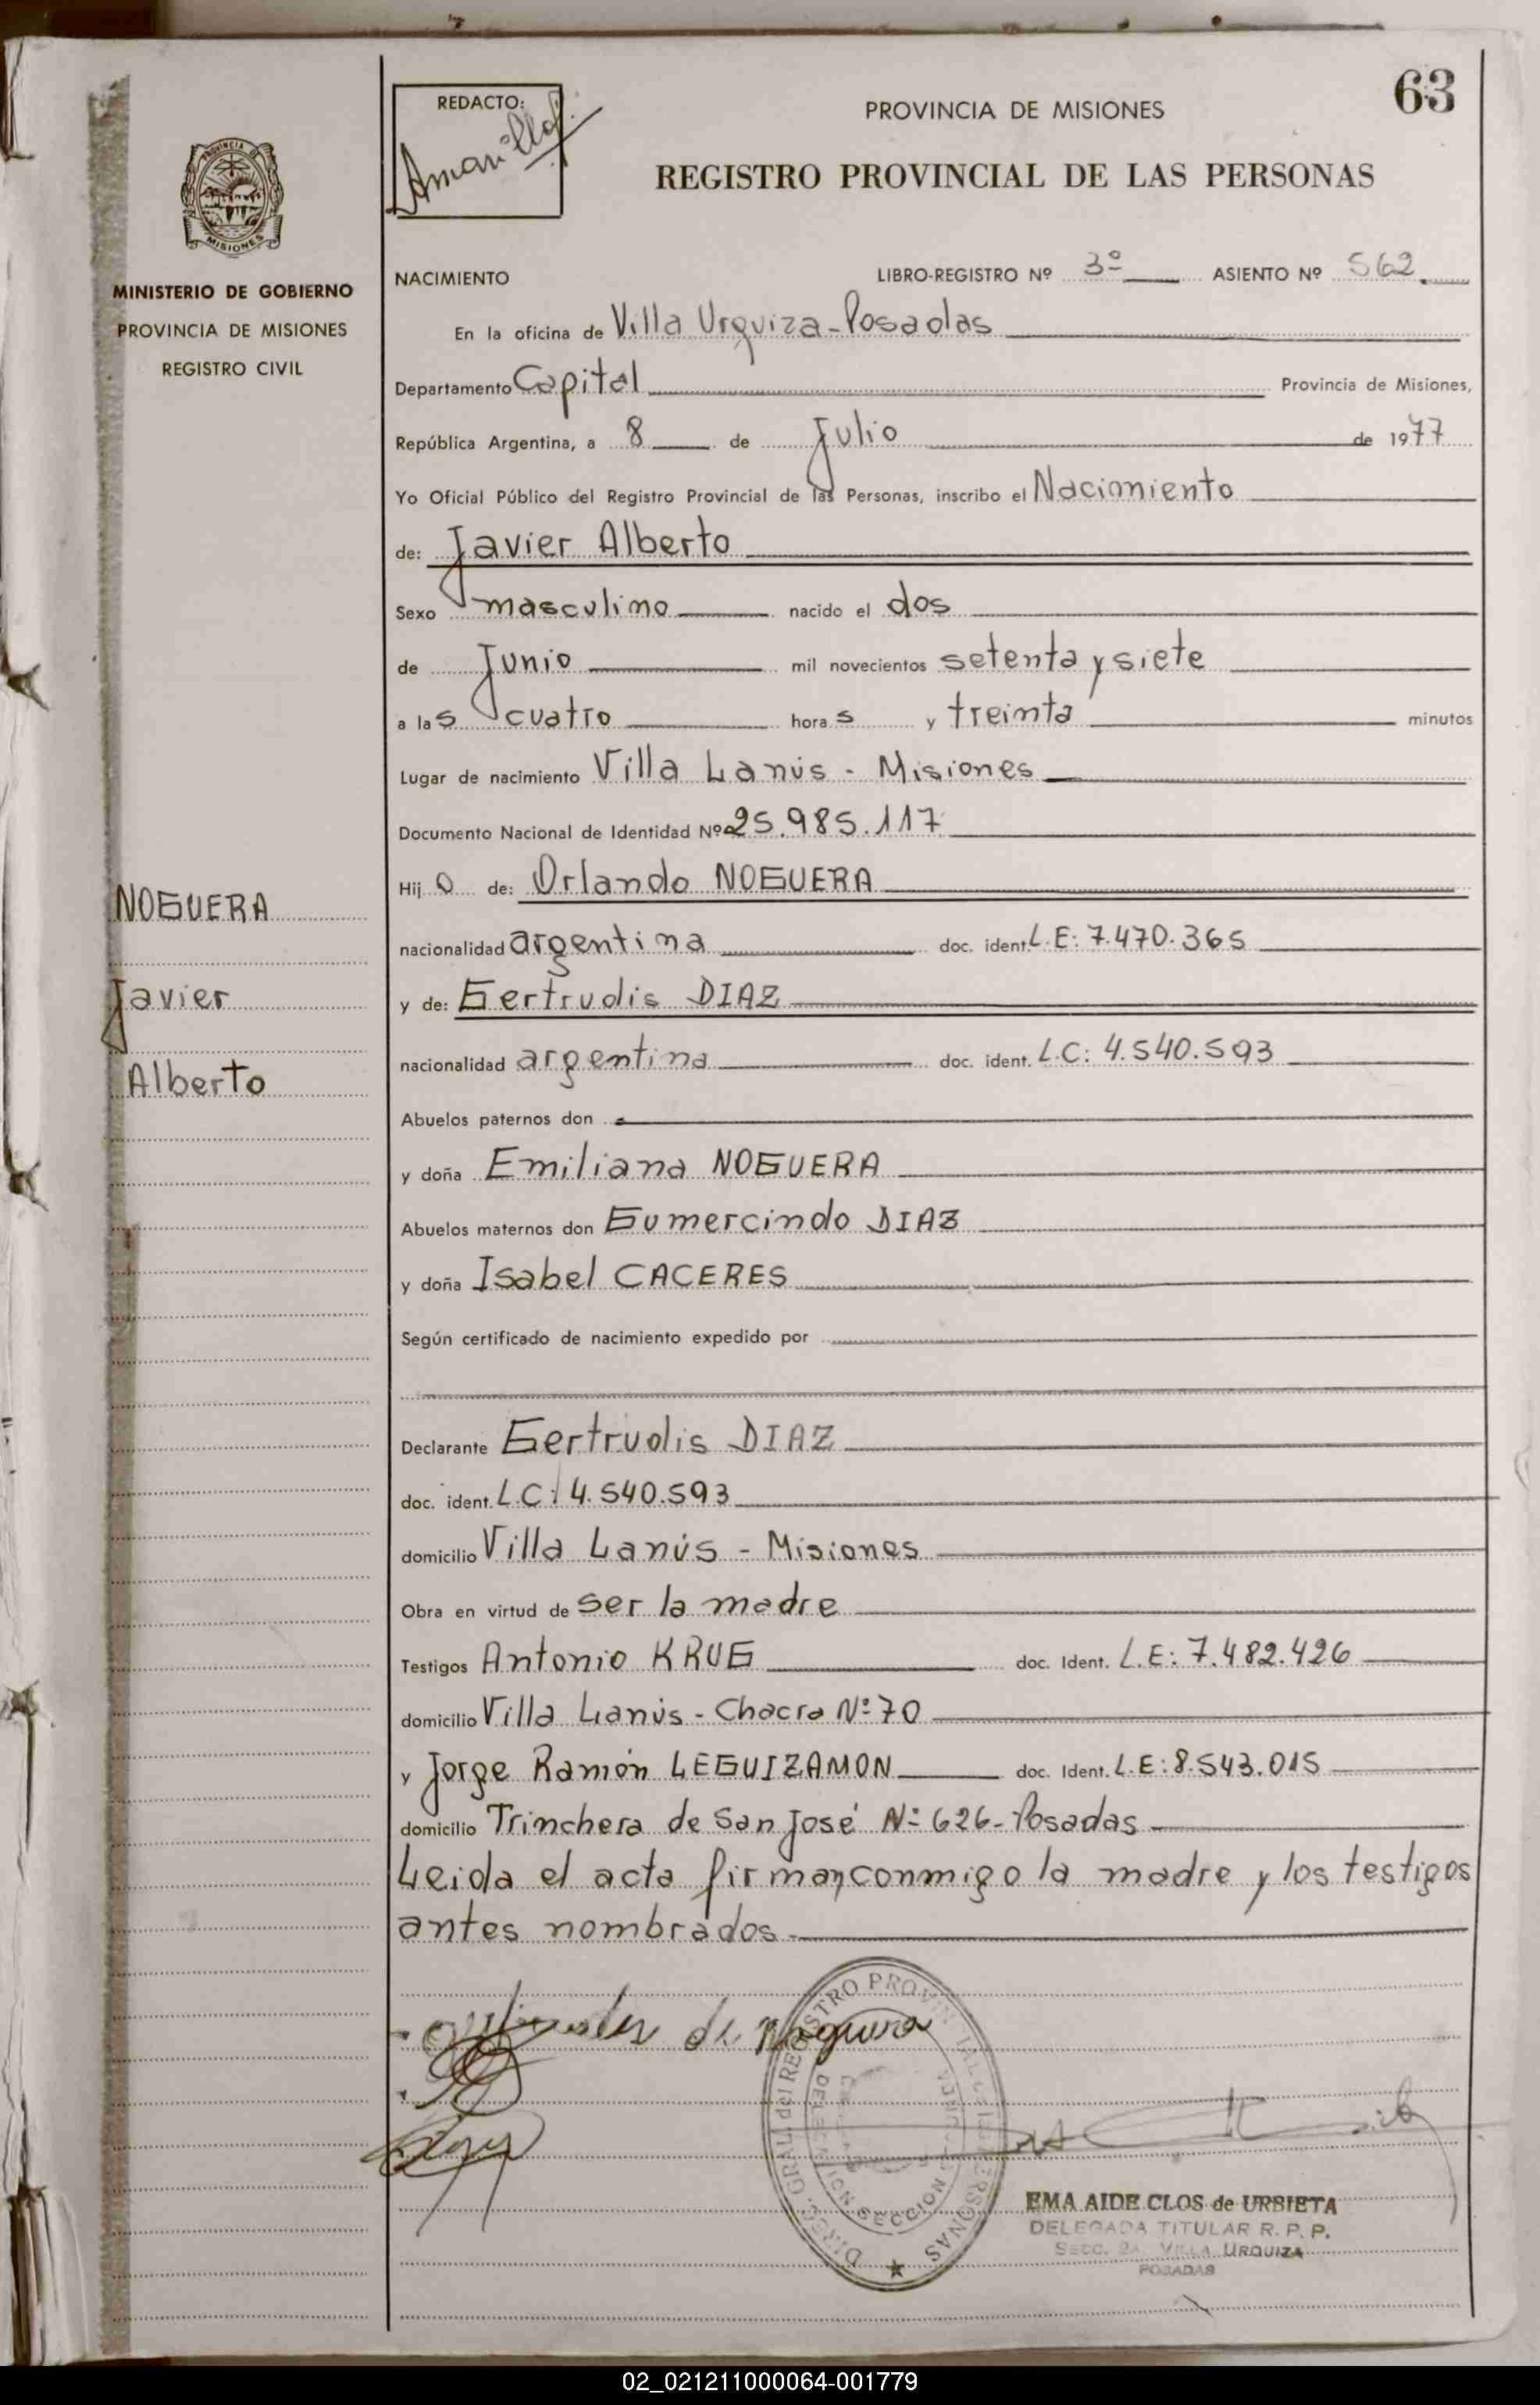 63
REDACTO:
PROVINCIA DE MISIONES
REGISTRO PROVINCIAL DE LAS PERSONAS
PROVINCIA DE
MISIONES
MINISTERIO DE GOBIERNO
PROVINCIA DE MISIONES
REGISTRO CIVIL
NACIMIENTO LIBRO-REGISTRO Nº 3º ASIENTO Nº 562
En la oficina de Villa Urquiza-Posadas
Departamento Capital Provincia de Misiones,
República Argentina, a 8 de Julio de 1977
Yo Oficial Público del Registro Provincial de las Personas, inscribo el Nacimiento
de: Javier Alberto
Sexo masculino nacido el dos
de Junio mil novecientos setenta y siete
a las cuatro horas y treinta minutos
Lugar de nacimiento Villa Lanús - Misiones
Documento Nacional de Identidad Nº 25.985.117
Hijo de: Orlando NOGUERA
nacionalidad argentina doc. ident. L.E: 7.470.365
y de: Gertrudis DIAZ
nacionalidad argentina doc. ident. L.C: 4.540.593
Abuelos paternos don
y doña Emiliana NOGUERA
Abuelos maternos don Gumercindo DIAZ
y doña Isabel CACERES
Según certificado de nacimiento expedido por
Declarante Gertrudis DIAZ
doc. ident. L.C: 4.540.593
domicilio Villa Lanús - Misiones
Obra en virtud de ser la madre
Testigos Antonio KRUG doc. Ident. L.E: 7.482.426
domicilio Villa Lanús - Chacra Nº 70
y Jorge Ramón LEGUIZAMON doc. Ident. L.E: 8.543.015
domicilio Trinchera de San José Nº 626-Posadas
Leida el acta firman conmigo la madre y los testigos
antes nombrados.
NOGUERA
Javier
Alberto
de Noguera
DIREC. GRAL. del REGISTRO PROVINCIAL de las PERSONAS
SECCION
EMA AIDE CLOS de URBIETA
DELEGADA TITULAR R. P. P.
SECC. 2a. VILLA URQUIZA
POSADAS
02_021211000064-001779